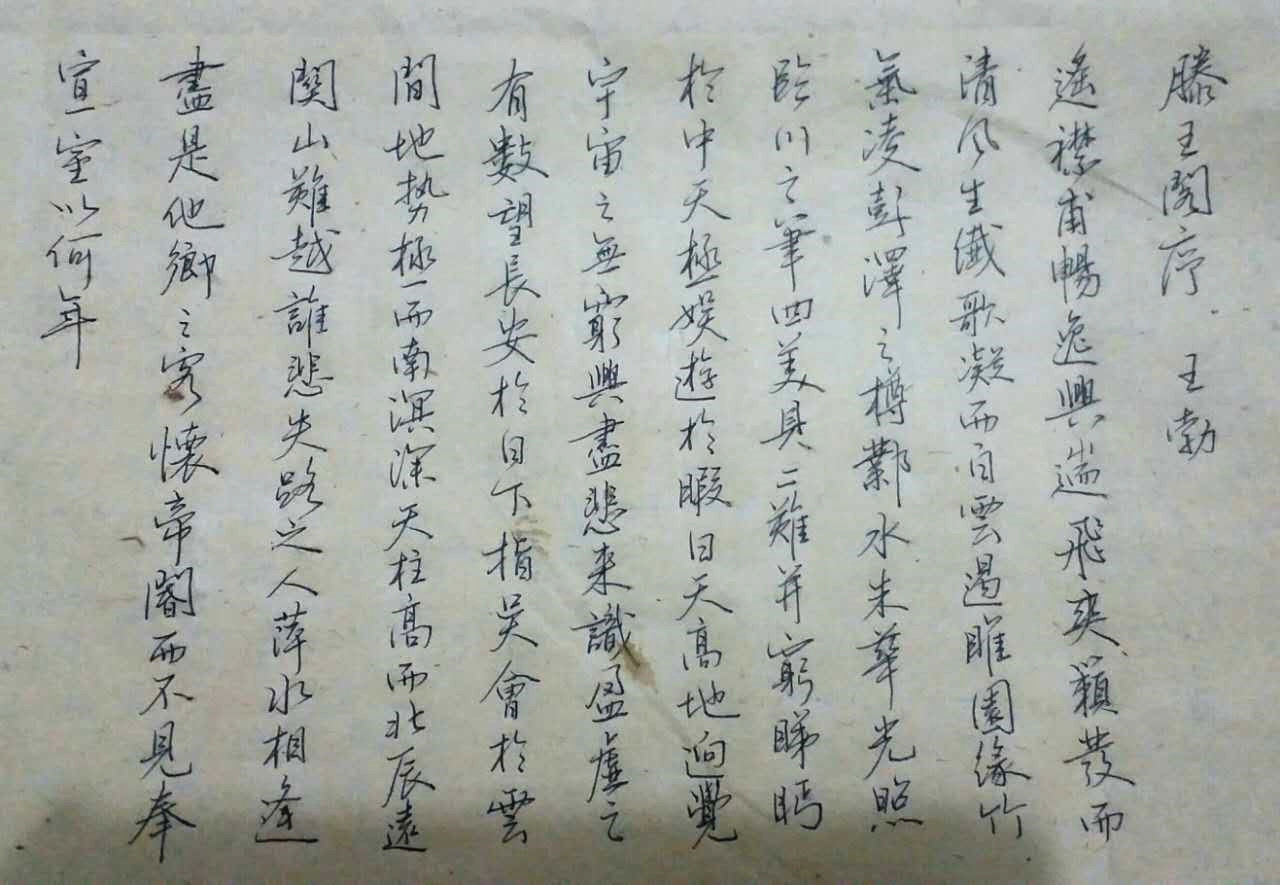 滕王閣序 王勃
遙襟甫暢逸興遄飛爽籟發而
清風生纖歌凝而白雲遏睢園緣竹
氣凌彭澤之樽鄴水朱華光照
臨川之筆四美具二難并窮睇眄
於中天極娛遊於暇日天高地迥覺
宇宙之無窮興盡悲來識盈虛之
有數望長安於日下指吳會於雲
間地势極而南溟深天柱高而北辰遠
関山難越誰悲失路之人萍水相逢
盡是他鄉之客懷帝閽而不見奉
宣室以何年